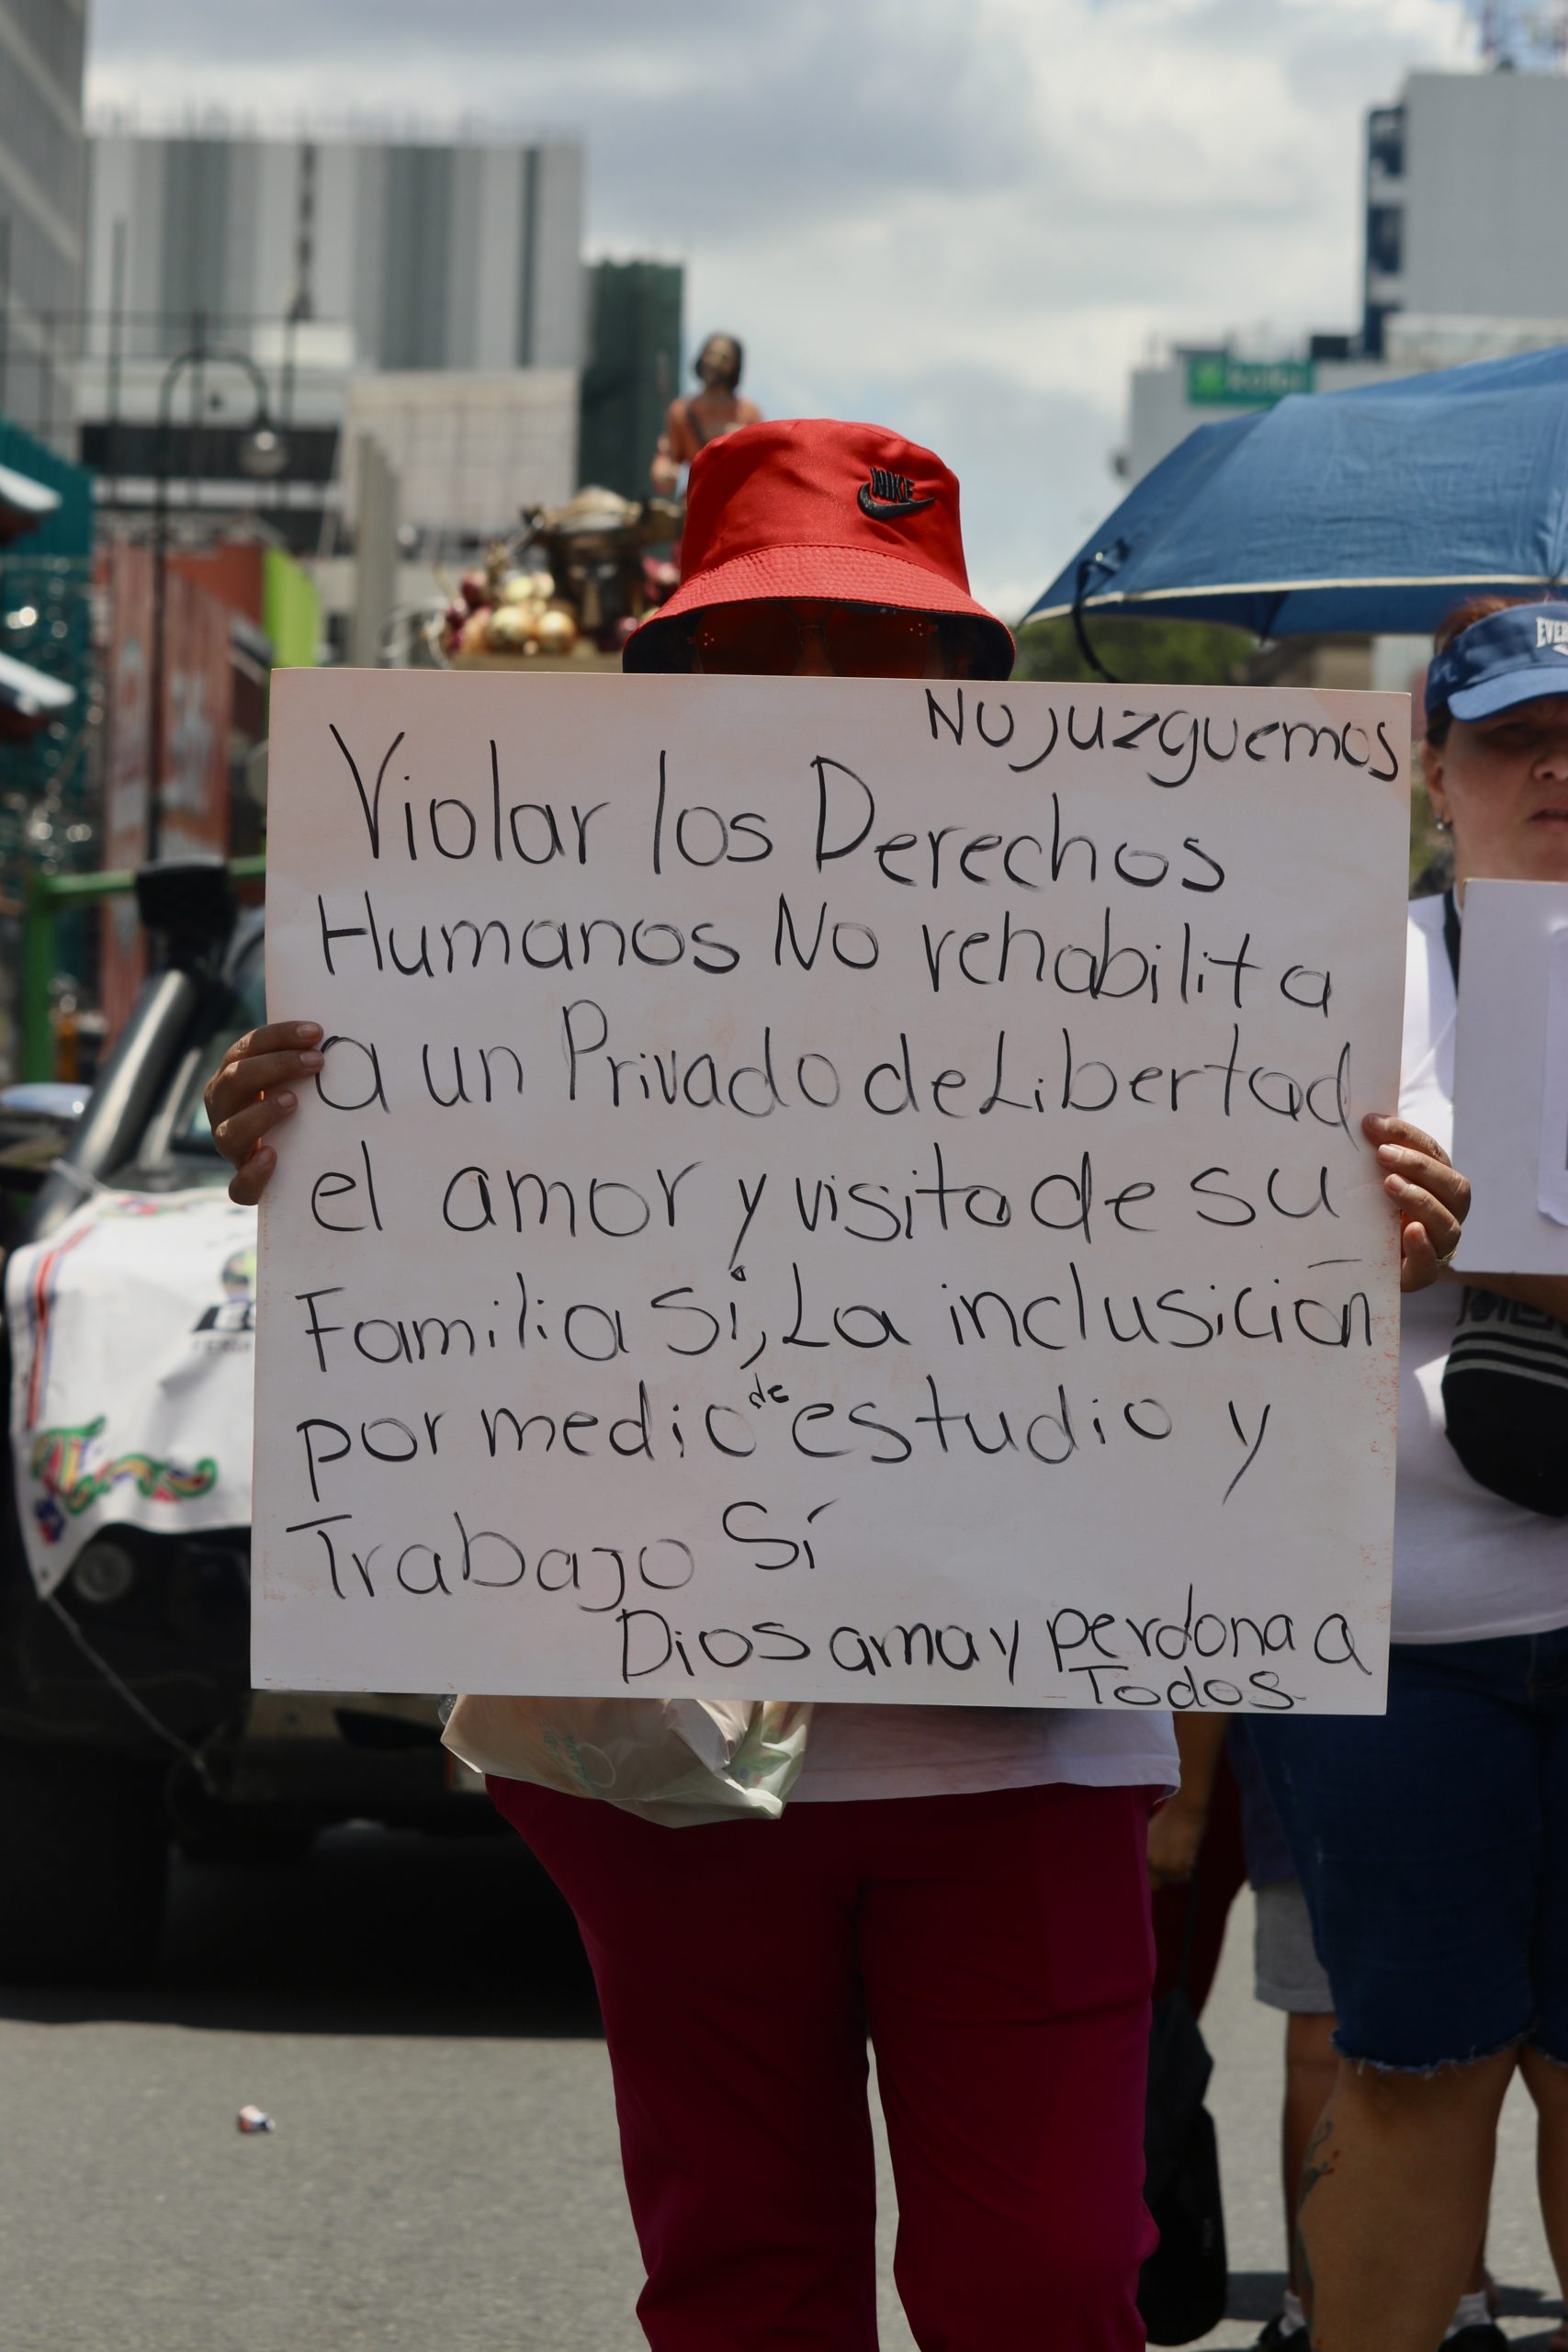 No juzguemos
Violar los Derechos
Humanos No rehabilita
a un Privado de Libertad
el amor y visita de su
Familia Si, La inclusición
por medio de estudio y
Trabajo Sí
Dios ama y perdona a
Todos
NIKE
kolbi